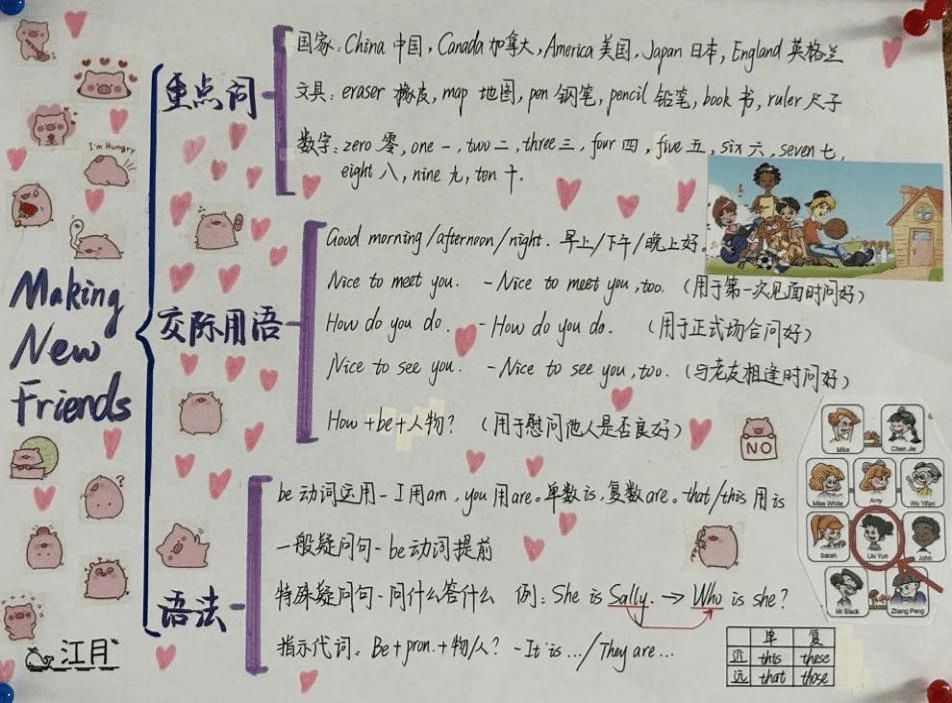 国家：China 中国，Canada 加拿大，America 美国，Japan 日本，England 英格兰
重点词
文具：eraser 橡皮，map 地图，pen 钢笔，pencil 铅笔，book 书，ruler 尺子
数字：zero 零，one 一，two 二，three 三，four 四，five 五，six 六，seven 七，
eight 八，nine 九，ten 十．
I'm Hungry
Making
New
Friends
交际用语
Good morning/afternoon/night. 早上/下午/晚上好
Nice to meet you. - Nice to meet you, too. （用于第一次见面时问好）
How do you do. - How do you do. （用于正式场合问好）
Nice to see you. - Nice to see you, too. （与老友相逢时问好）
How + be + 人物？（用于慰问他人是否良好）
NO
?
Mike
Chen Jie
Miss White
Amy
Wu Yifan
Sarah
Liu Yun
John
Mr Black
Zhang Peng
语法
be 动词运用 - I 用 am，you 用 are。单数 is，复数 are。that/this 用 is
一般疑问句 - be 动词提前
特殊疑问句 - 问什么答什么 例：She is Sally. → Who is she?
指示代词。Be + pron. + 物/人？ - It is .../They are...
单 复
近 this these
远 that those
江月